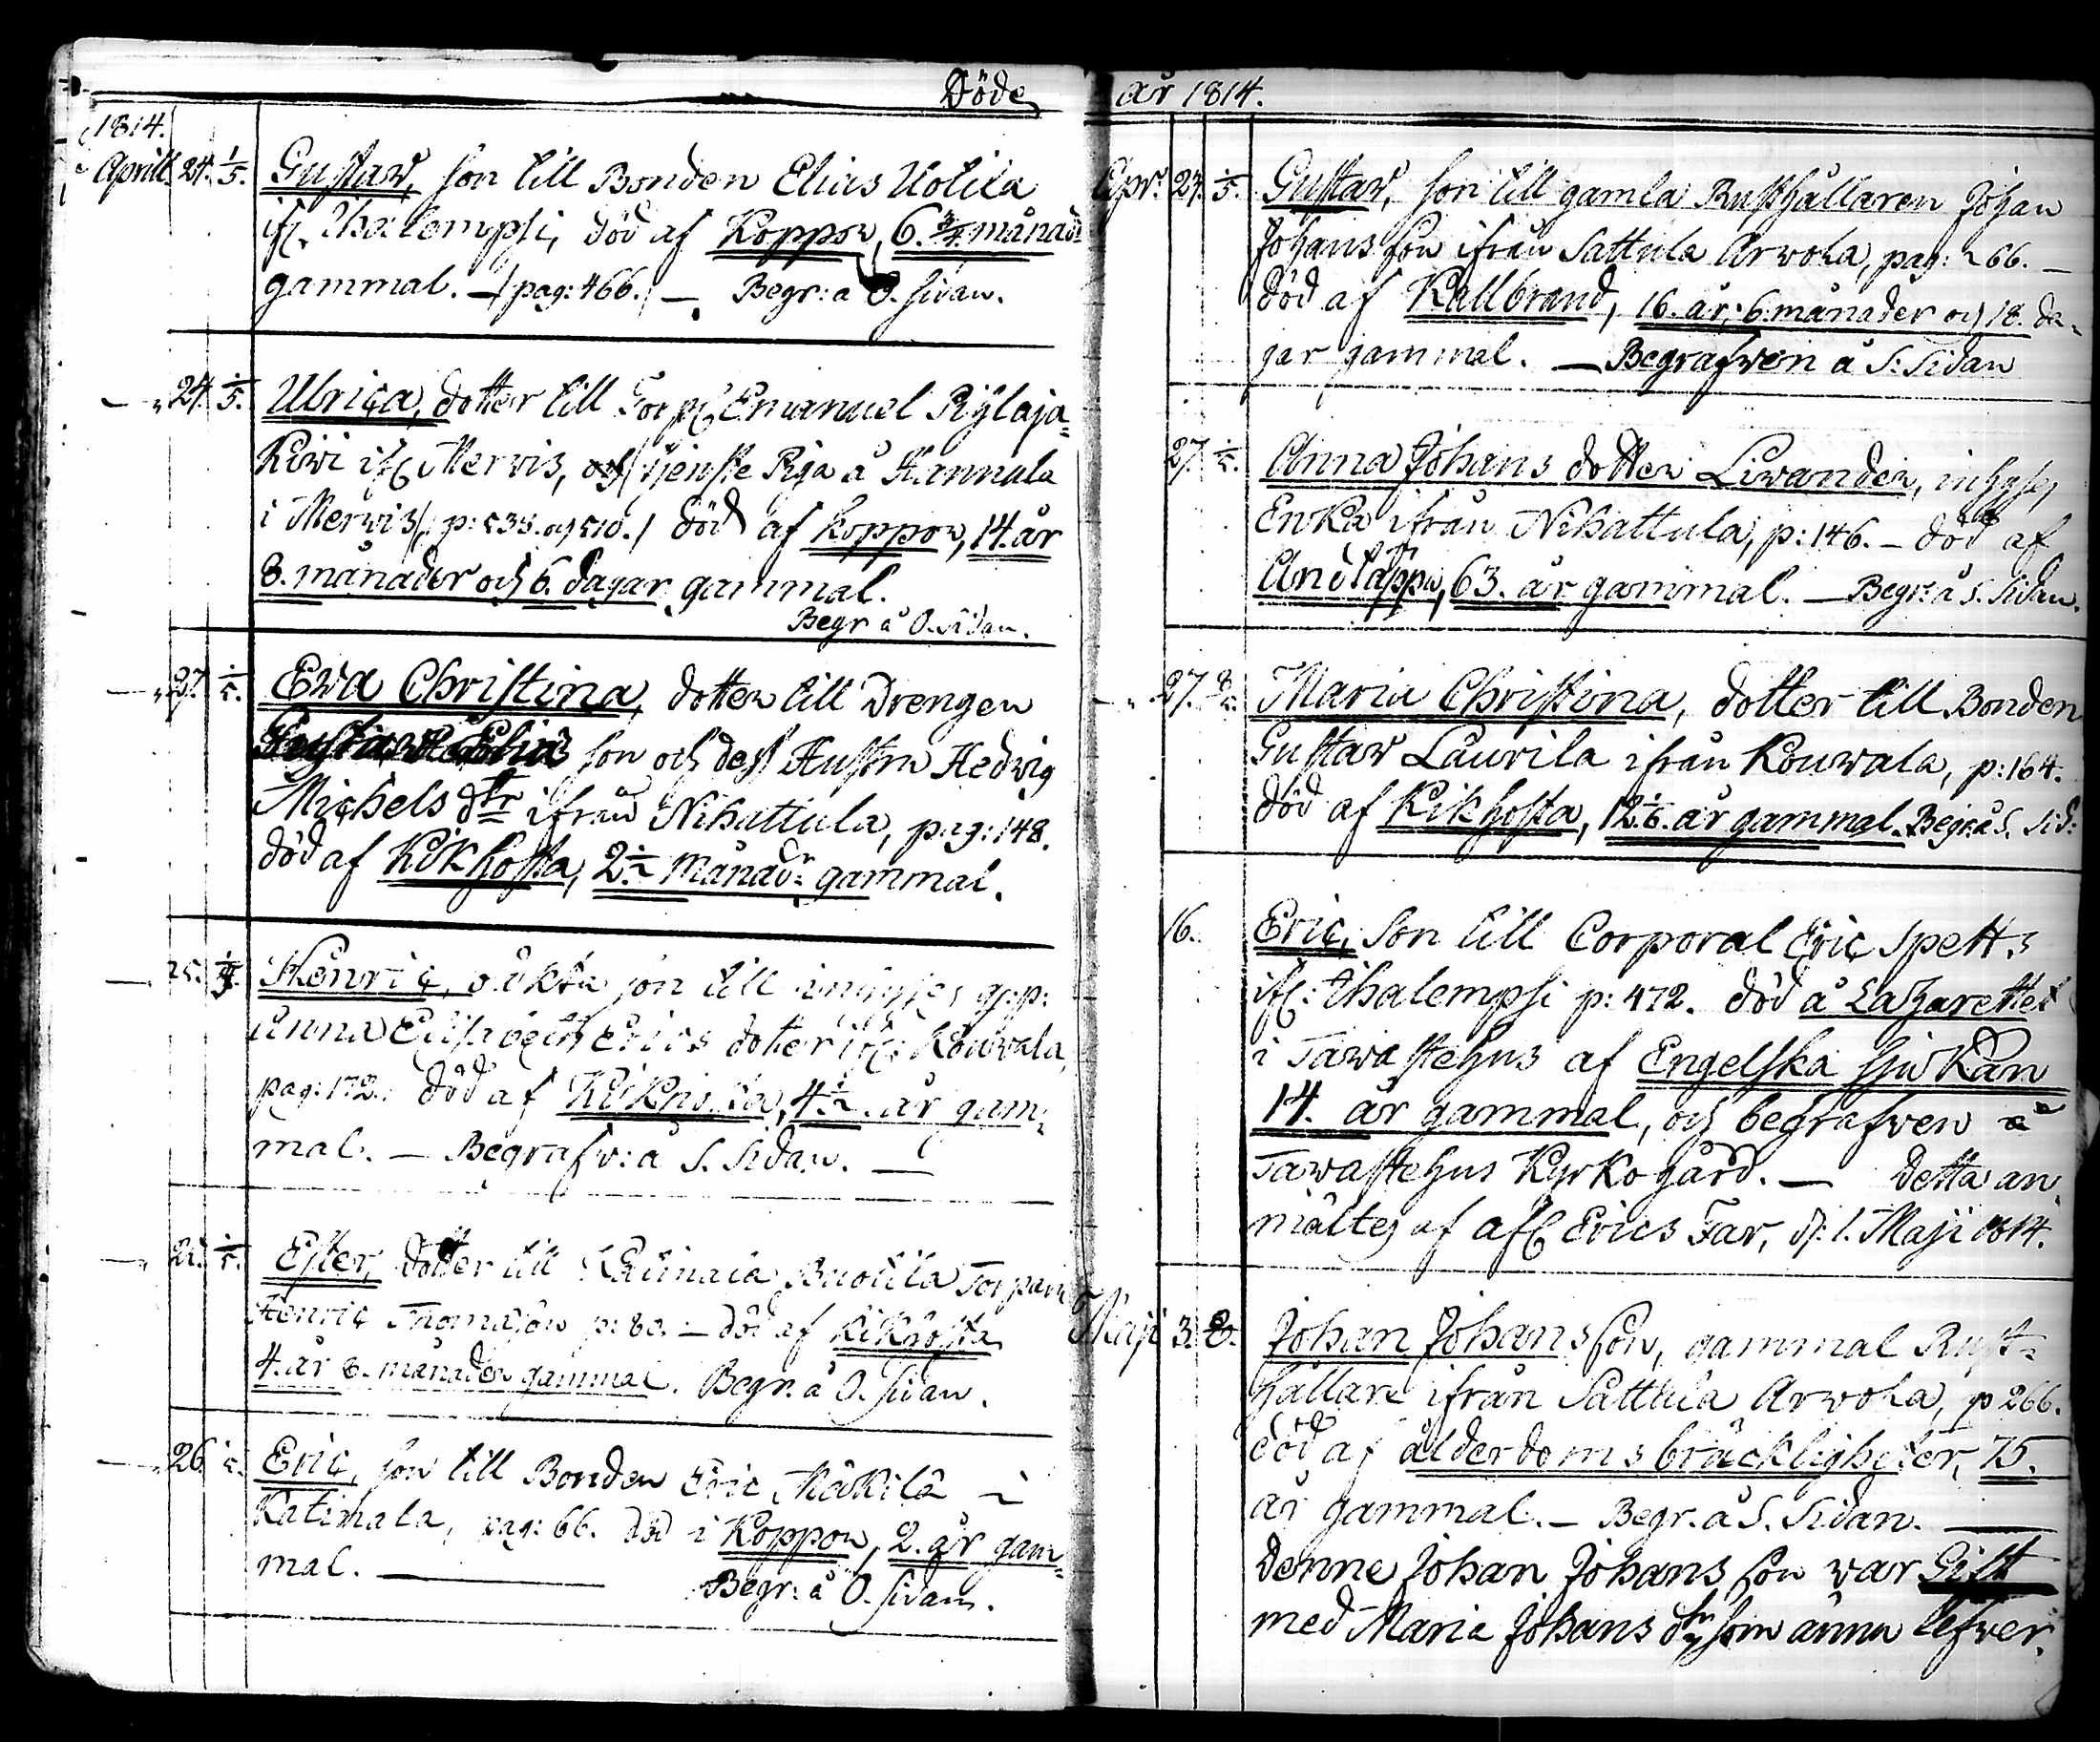 Döde
1814.
Aprill. 24. 1/5. Gustaw, son till Bonden Elias Uotila
ifr. Ihalempsi, död af Koppor, 6. 3/4. månadr
gammal. — /pag: 466./ — Begr: å O. sidan.
24. 1/5. Ulrica, dotter till Torp. Emanuel Pijlaja=
Kiwi ifr. Merwis, och tjenste Piga å Hannula
i Merwis /: p: 535. och 510. / död af koppor, 14. år
8. månader och 6. dagar gammal.
Begr å O. Sidan.
27. 1/5. Ewa Christina, dotter till Drengen
son och dess Hustru Hedwig
Michels dtr ifrån Nihattula, pag: 148.
död af Kikhosta, 2 1/2 Månadr gammal.
25. Henric, oäkta son till inhyses
Anna Elisabeth Erics dotter ifr: Kouwala,
pag: 172. död af Kikhosta, 4. 1/2. år gam=
mal. — Begrafw: å S. Sidan. —
1/5. Ester, dotter till Torparn
Henric Thomasson p: 80. — död af Kikhosta
4. år 8. månader gammal. Begr. å O. Sidan.
26. 1/5. Eric, son till Bonden Eric Mäkilä i
Katimala, pag: 66. död i Koppor, 2. år gam=
mal. — Begr: å O. sidan.
år 1814.
Apr. 24. 1/5. Gustaw, son till gamla Rusthållaren Johan
Johansson ifrån Sattula Arwola, pag: 266. —
död af Kallbrand, 16. år, 6. månader och 18. da=
gar gammal. — Begrafwen å S: Sidan
27. 1/5. Anna Johans dotter Liwander, inhyses
Enka ifrån Nihattula, p: 146. — död af
Andtäppa, 63. år gammal. — Begr. å S. Sidan.
27. 8/5. Maria Christina, dotter till Bonden
Gustaw Laurila ifrån Kouwala, p: 164.
död af Kikhosta, år gammal. Begr. å S. Sid:
16. Eric, Son till Corporal Eric Spetts
ifr: Ihalempsi p: 472. död å Lazarettet
i Tawastehus af Engelska sjukan
14. år gammal, och begrafwen å
Tawastehus Kyrkogård. — Detta an=
mältes af afl. Erics Far, d: 1. Maji 1814.
Maji 3. 8. Johan Johansson, gammal Rust=
hållare ifrån Sattula Arwola, p 266.
död af ålderdoms bräckligheter, 75.
år gammal. — Begr. å S. Sidan. —
Denne Johan Johansson war Gift
med Maria Johans dtr som ännu lefwer.